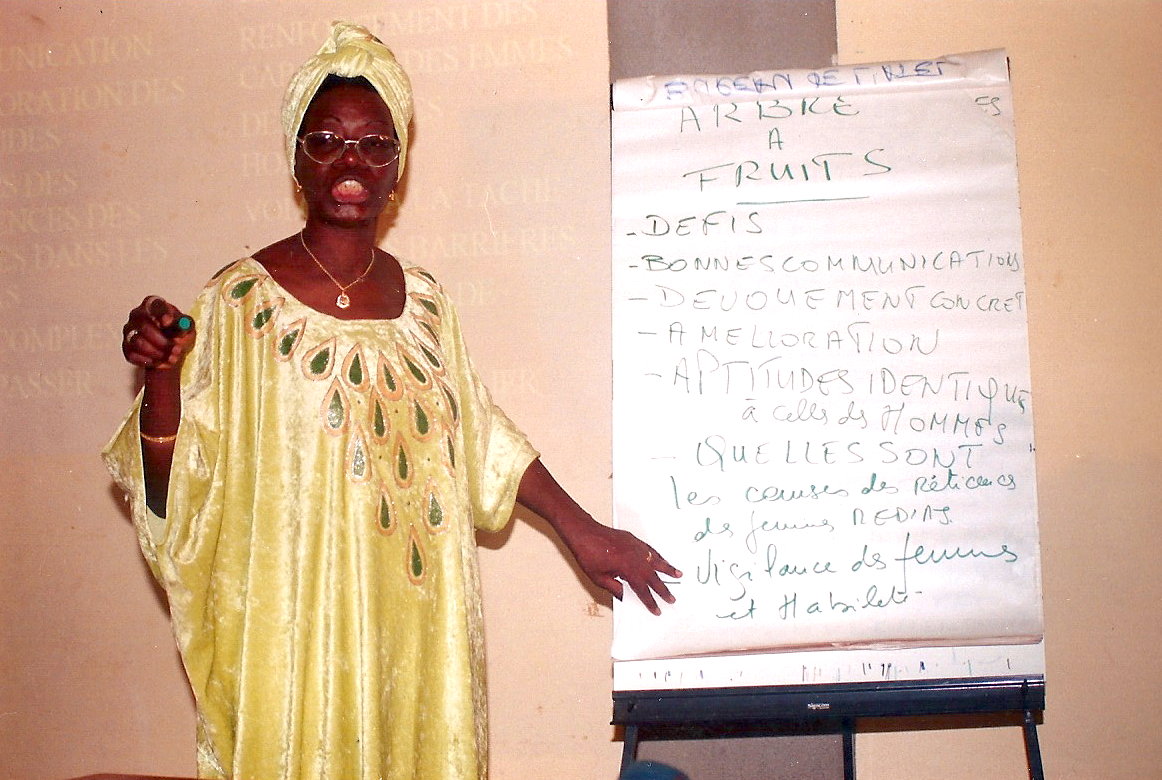 UNICATION
ORATION DES
IDES
S DES
ENCE DES
ES DANS LES
COMPLEX
PASSER
RENFORCEMENT DES
DES FEMMES
LA TACHE
BARRIERES
DE
ARBRE
A
FRUITS
- DEFIS
- BONNES COMMUNICATIONS
- DEVOUEMENT CONCRET
- AMELIORATION
- APTITUDES IDENTIQUES
à celles des HOMMES
- QUELLES SONT
les causes des Réticences
des femmes MEDIAS
- Vigilance des femmes
et Habileté